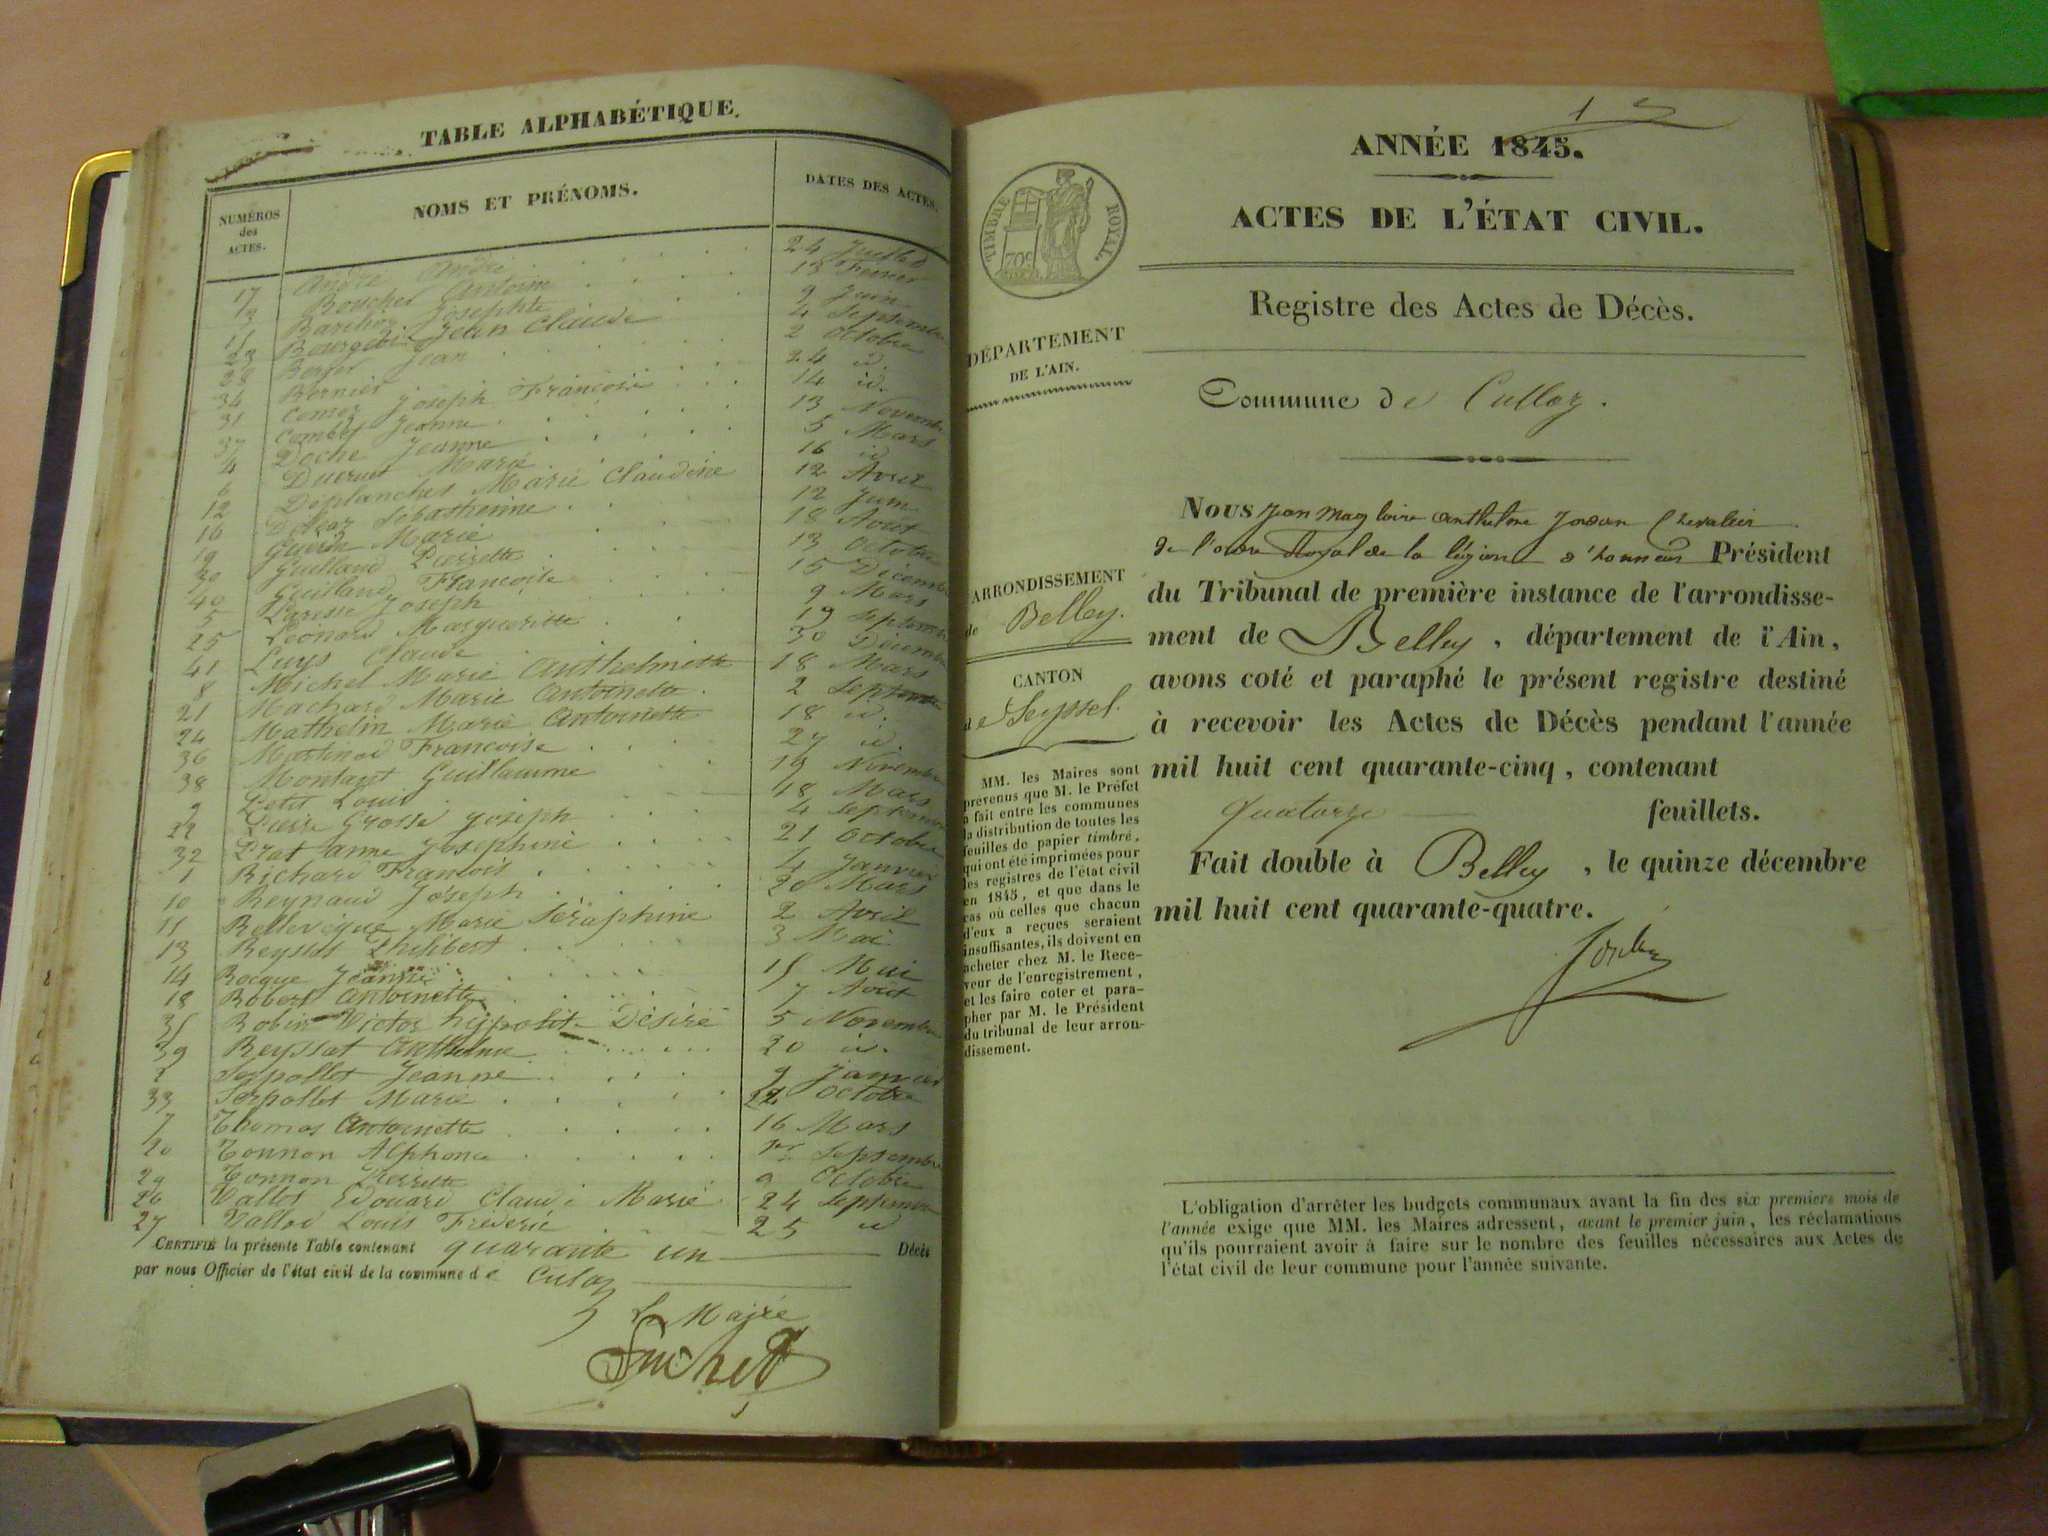 TABLE ALPHABÉTIQUE.
NUMÉROS des ACTES. NOMS ET PRÉNOMS. DATES DES ACTES.
17 André André 24 Juillet
3 Bouchet Antoine 18 Fevrier
Josephte 9 Juin
23 Jean Claude 4 Septembre
28 Berger Jean 2 Octobre
34 Bernier 24 id.
31 Joseph Francois 14 id.
37 Combet Jeanne 13 Novembre
4 Doche Jeanne 5 Mars
6 Ducruet Marie 16 id
12 Déplanches Marie Claudine 12 Avril
16 12 Juin
19 Guérin Marie 18 Août
30 Guilland Pierrette 13 Octobre
40 Guilland Françoise 15 Décembre
5 Joseph 9 Mars
25 Léonard Margueritte 19 Septembre
41 Luys Claude 30 Décembre
8 Michel Marie Anthelmette 18 Mars
21 Machard Marie Antoinette 2 Septembre
24 Mathelin Marie Antoinette 18 id.
36 Martinod Francoise 27 id.
38 Montant Guillaume 19 Novembre
9 Petit Louis 18 Mars
22 Pierre Grosse Joseph 4 Septembre
32 Prat anne Josephine 21 Octobre
1 Richard Francois 4 Janvier
10 Reynaud Joseph 20 Mars
11 Bellevègue Marie Séraphine 2 Avril
13 Philibert 3 Mai
14 Rocque 15 Mai
18 Robert Antoinette 7 Août
35 Robin Victor hippolite Désiré 5 Novembre
39 Reyssat Anthelme 20 id.
2 Serpollet Jeanne 9 Janvier
33 Serpollet Marie 22 Octobre
7 Thomas Antoinette 16 Mars
20 Tonnon Alphonce 1er Septembre
29 Tonnon Pierrette 9 Octobre
26 Vallod Edouard Claude Marie 24 Septembre
27 Vallod Louis Frédéric 25 id
CERTIFIÉ la présente Table contenant quarante un Décès
par nous Officier de l'état civil de la commune de Culoz
Le Maire
Suchet
1
ANNÉE 1845.
TIMBRE ROYAL.
70c
ACTES DE L'ÉTAT CIVIL.
Registre des Actes de Décès.
DÉPARTEMENT
DE L'AIN.
Commune de Culloz.
ARRONDISSEMENT
de Belley.
CANTON
de Seyssel.
MM. les Maires sont
prévenus que M. le Préfet
a fait entre les communes
la distribution de toutes les
feuilles de papier timbré,
qui ont été imprimées pour
les registres de l'état civil
en 1845, et que dans le
cas où celles que chacun
d'eux a reçues seraient
insuffisantes, ils doivent en
acheter chez M. le Rece-
veur de l'enregistrement,
et les faire coter et para-
pher par M. le Président
du tribunal de leur arron-
dissement.
NOUS Jean Magloire anthelme Jordan Chevalier
de l'ordre Royal de la légion d'honneur Président
du Tribunal de première instance de l'arrondisse-
ment de Belley, département de l'Ain,
avons coté et paraphé le présent registre destiné
à recevoir les Actes de Décès pendant l'année
mil huit cent quarante-cinq, contenant
quatorze feuillets.
Fait double à Belley, le quinze décembre
mil huit cent quarante-quatre.
Jordan
L'obligation d'arrêter les budgets communaux avant la fin des six premiers mois de
l'année exige que MM. les Maires adressent, avant le premier juin, les réclamations
qu'ils pourraient avoir à faire sur le nombre des feuilles nécessaires aux Actes de
l'état civil de leur commune pour l'année suivante.